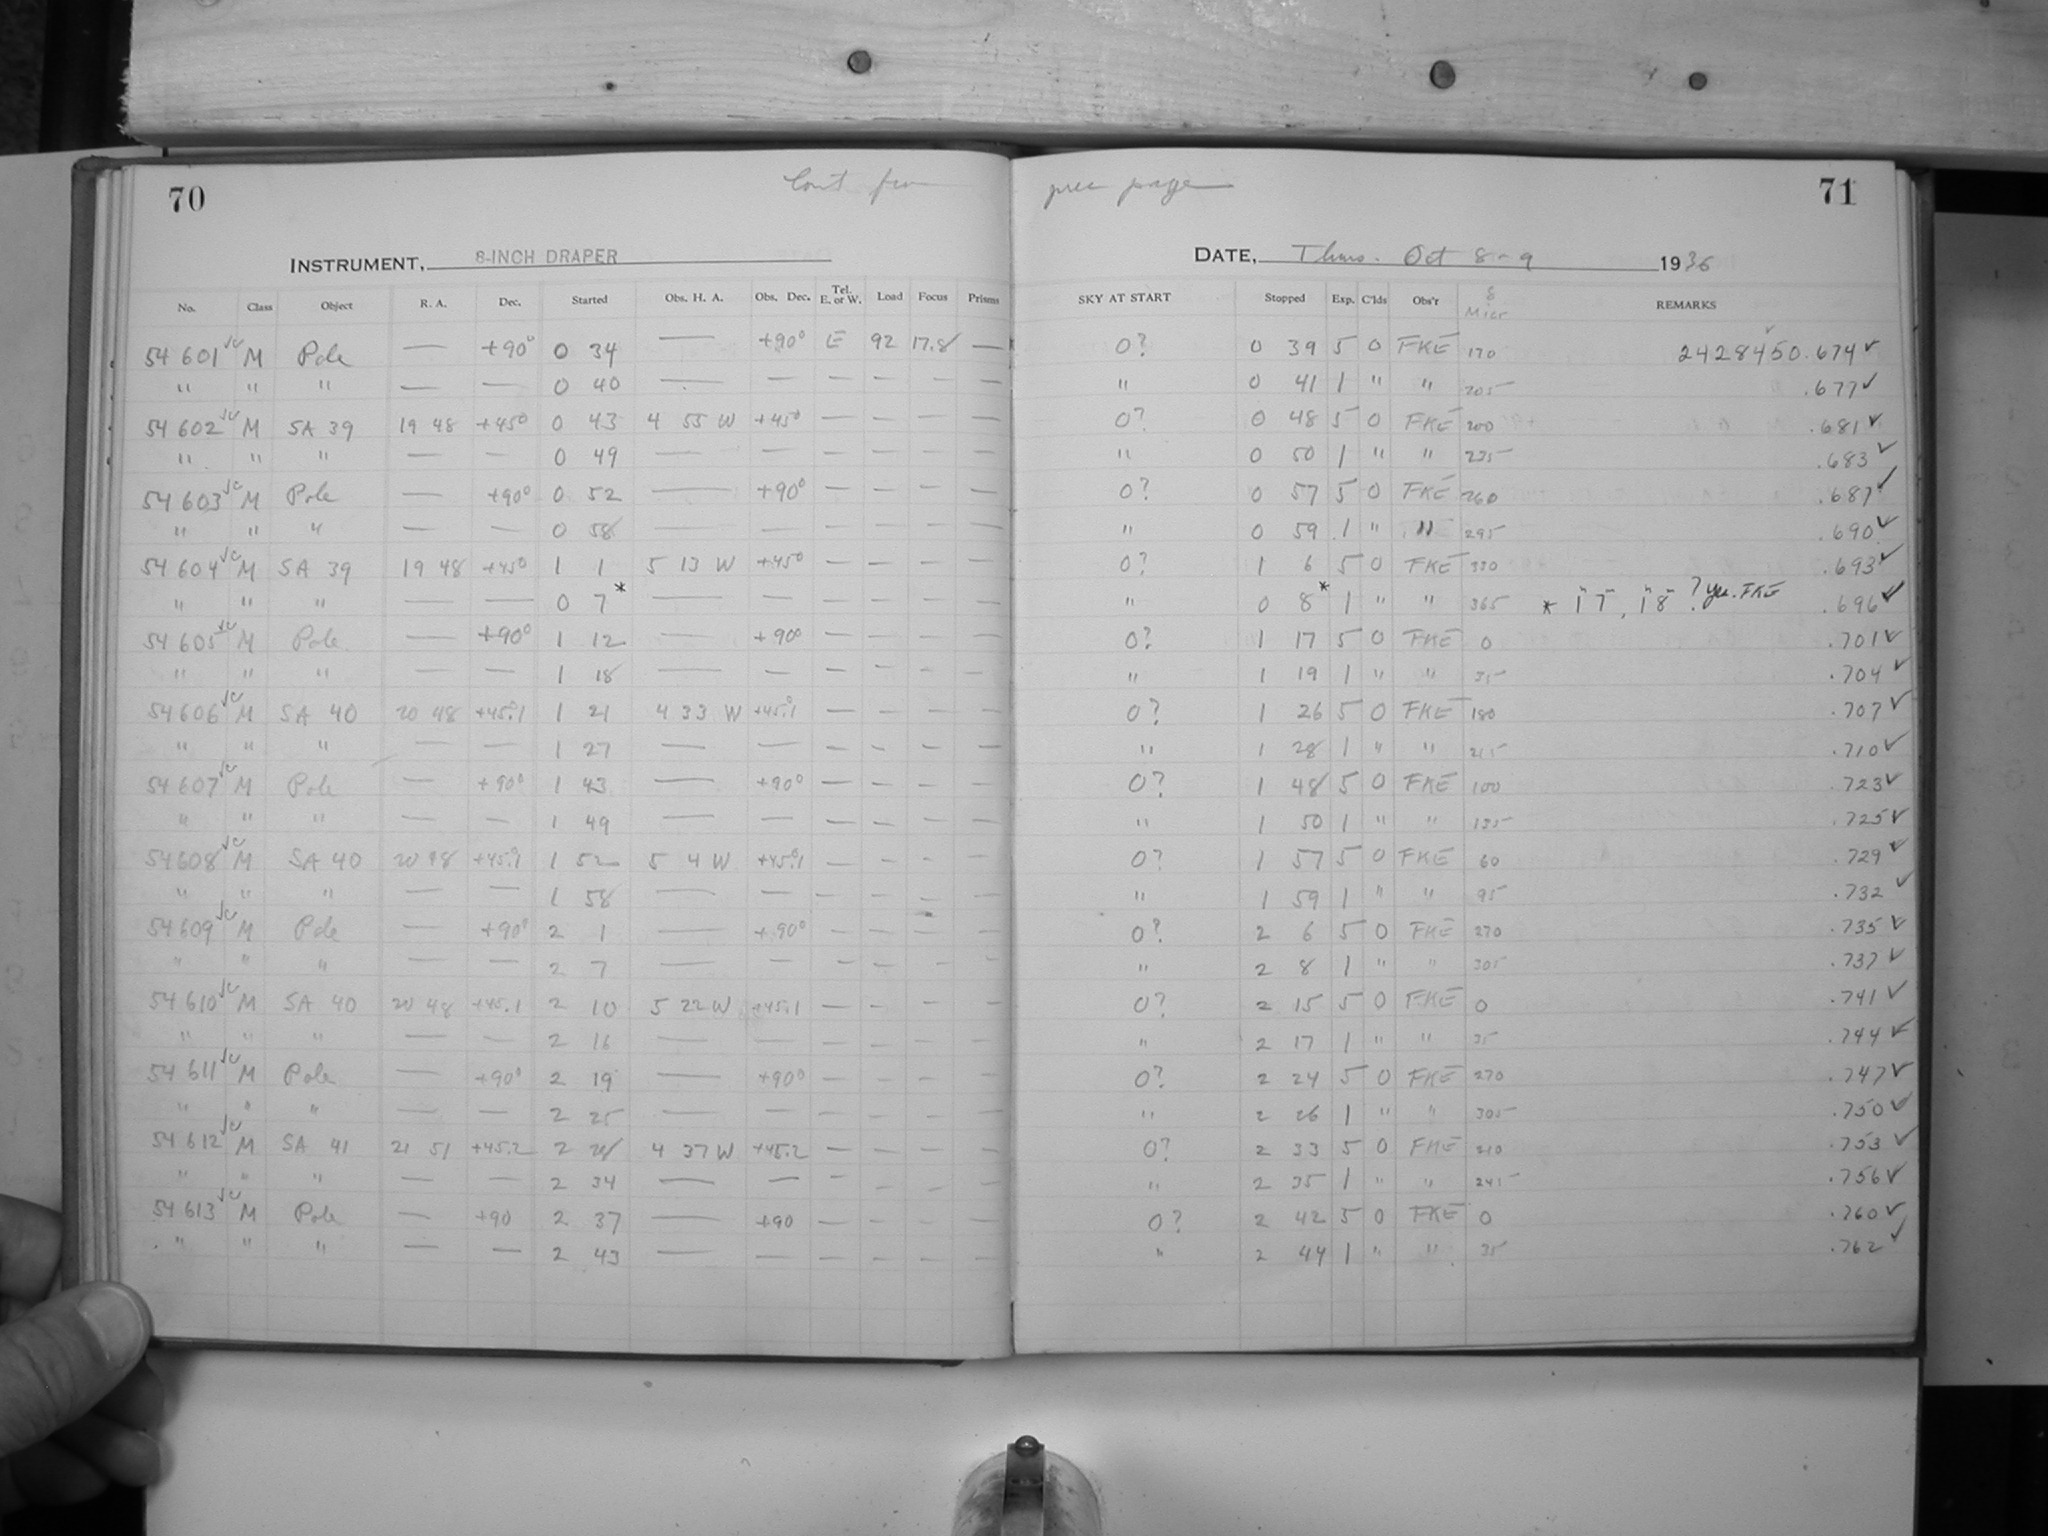 70 Cont from prec page 71
INSTRUMENT, 8-INCH DRAPER DATE, Thurs. Oct 8-9 1936
No. Class Object R. A. Dec. Started Obs. H. A. Obs. Dec. Tel. E. or W. Load Focus Prisms SKY AT START Stopped Exp. C'lds Obs'r Micr REMARKS
54601 M Pole — +90° 0 34 — +90° E 92 17.8 — 0? 0 39 5 0 FKE 170 2428450.674 ✓
" " " — — 0 40 — — — — — — " 0 41 1 " " 205 .677 ✓
54602 M SA 39 19 48 +45° 0 43 4 55 W +45° — — — — 0? 0 48 5 0 FKE 200 .681 ✓
" " " — — 0 49 — — — — — — " 0 50 1 " " 235 .683 ✓
54603 M Pole — +90° 0 52 — +90° — — — — 0? 0 57 5 0 FKE 260 .687 ✓
" " " — — 0 58 — — — — — — " 0 59 1 " " 295 .690 ✓
54604 M SA 39 19 48 +45° 1 1 5 13 W +45° — — — — 0? 1 6 5 0 FKE 330 .693 ✓
" " " — — 0 7* — — — — — — " 0 8* 1 " " 365 * 1 7, 1 8 ? yes. FKE .696 ✓
54605 M Pole — +90° 1 12 — +90 — — — — 0? 1 17 5 0 FKE 0 .701 ✓
" " " — — 1 18 — — — — — — " 1 19 1 " " 35 .704 ✓
54606 M SA 40 20 48 +45.1 1 21 4 33 W +45.1 — — — — 0? 1 26 5 0 FKE 180 .707 ✓
" " " — — 1 27 — — — — — — " 1 28 1 " " 215 .710 ✓
54607 M Pole — +90° 1 43 — +90° — — — — 0? 1 48 5 0 FKE 100 .723 ✓
" " " — — 1 49 — — — — — — " 1 50 1 " " 135 .725 ✓
54608 M SA 40 20 48 +45.1 1 52 5 4 W +45.1 — — — — 0? 1 57 5 0 FKE 60 .729 ✓
" " " — — 1 58 — — — — — — " 1 59 1 " " 95 .732 ✓
54609 M Pole — +90° 2 1 — +90° — — — — 0? 2 6 5 0 FKE 270 .735 ✓
" " " — — 2 7 — — — — — — " 2 8 1 " " 305 .737 ✓
54610 M SA 40 20 48 +45.1 2 10 5 22 W +45.1 — — — — 0? 2 15 5 0 FKE 0 .741 ✓
" " " — — 2 16 — — — — — — " 2 17 1 " " 35 .744 ✓
54611 M Pole — +90° 2 19 — +90° — — — — 0? 2 24 5 0 FKE 270 .747 ✓
" " " — — 2 25 — — — — — — " 2 26 1 " " 305 .750 ✓
54612 M SA 41 21 51 +45.2 2 28 4 37 W +45.2 — — — — 0? 2 33 5 0 FKE 210 .753 ✓
" " " — — 2 34 — — — — — — " 2 35 1 " " 245 .756 ✓
54613 M Pole — +90 2 37 — +90 — — — — 0? 2 42 5 0 FKE 0 .760 ✓
" " " — — 2 43 — — — — — — " 2 44 1 " " 35 .762 ✓